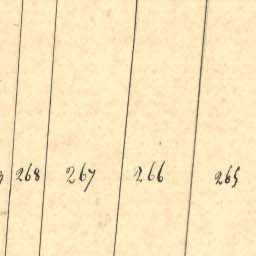 268 267 266 265